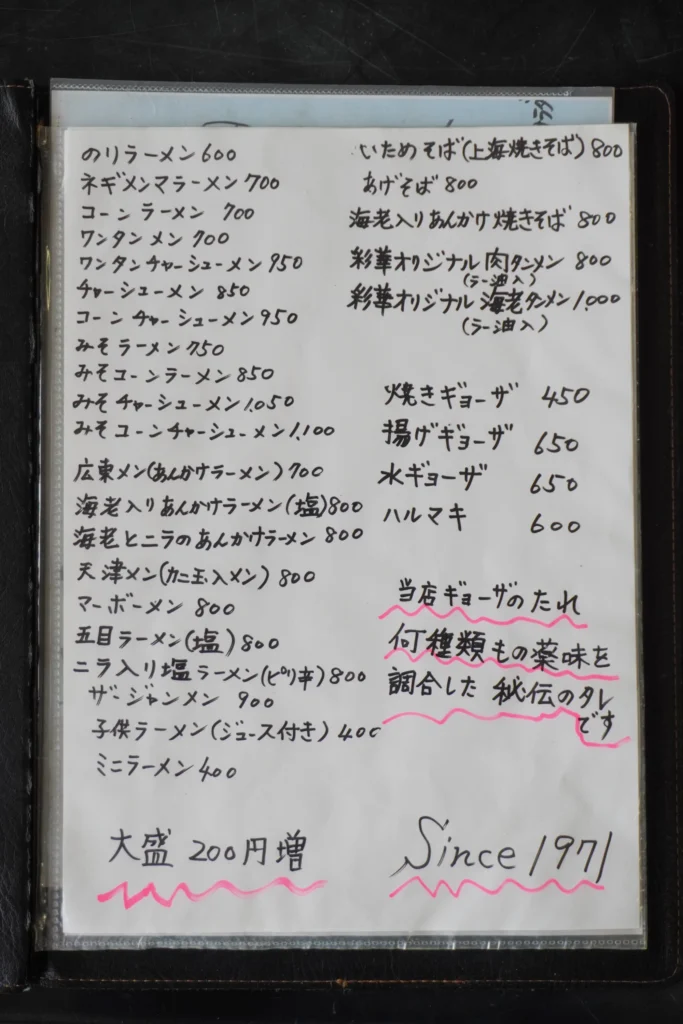 のりラーメン 600
ネギメンマラーメン 700
コーンラーメン 700
ワンタンメン 700
ワンタンチャーシューメン 950
チャーシューメン 850
コーンチャーシューメン 950
みそラーメン 750
みそコーンラーメン 850
みそチャーシューメン 1.050
みそコーンチャーシューメン 1.100
広東メン(あんかけラーメン) 700
海老入りあんかけラーメン(塩) 800
海老とニラのあんかけラーメン 800
天津メン(カニ玉入メン) 800
マーボーメン 800
五目ラーメン(塩) 800
ニラ入り塩ラーメン(ピリ辛) 800
ザージャンメン 900
子供ラーメン(ジュース付き) 400
ミニラーメン 400
大盛 200円増
いためそば(上海焼きそば) 800
あげそば 800
海老入りあんかけ焼きそば 800
彩華オリジナル肉タンメン 800
(ラー油入)
彩華オリジナル海老タンメン 1.000
(ラー油入)
焼きギョーザ 450
揚げギョーザ 650
水ギョーザ 650
ハルマキ 600
当店ギョーザのたれ
何種類もの薬味を
調合した 秘伝のタレ
です
Since 1971